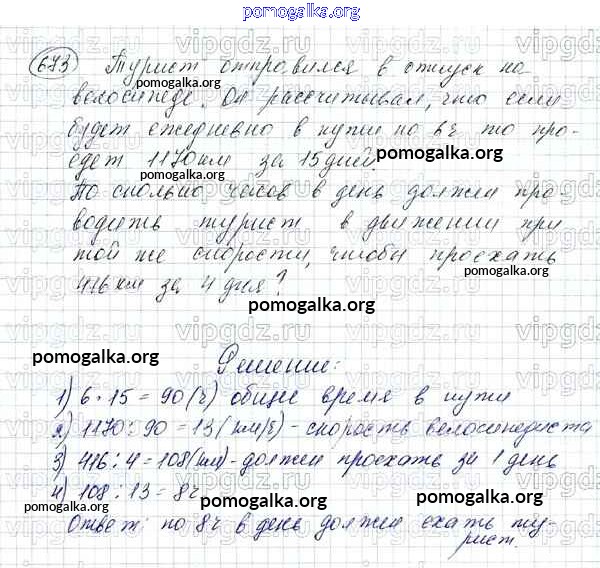 pomogalka.org
673 Турист отправился в отпуск на
велосипеде. Он рассчитывал, что если
будет ежедневно в пути по 6ч то про-
едет 1170км за 15 дней.
По сколько часов в день должен про-
водить турист в движении при
той же скорости, чтобы проехать
416км за 4 дня?
Решение:
1) 6 · 15 = 90 (ч) общее время в пути
2) 1170 : 90 = 13 (км/ч) - скорость велосипедиста
3) 416 : 4 = 108 (км) - должен проехать за 1 день
4) 108 : 13 = 8ч
Ответ: по 8ч в день должен ехать ту-
рист.
pomogalka.org
pomogalka.org
pomogalka.org
pomogalka.org
pomogalka.org
pomogalka.org
pomogalka.org
pomogalka.org